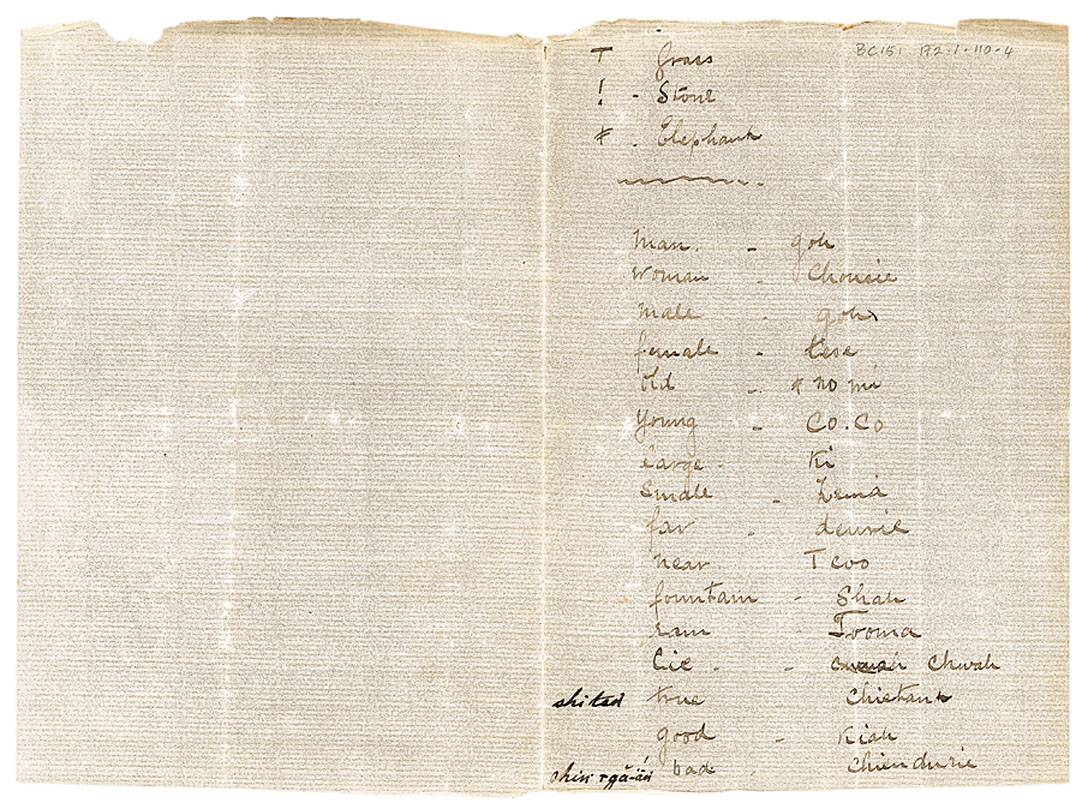 BC151 A2.1.110.4
T grass
! - Stone
ǂ - Elephant
man. - goh
woman - Chousie
male - goh
female - tese
old - ǂ no mi
young - Co.Co
Large - Ki
Small - Zema
far - deurie
near Tcoo
fountain - Shah
rain - Tooma
Lie - Chwah
shited true Chietan
good - Kiah
bad - Chiendurie